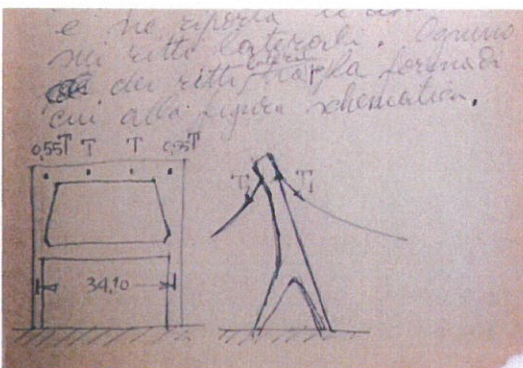 e ne riporta
sui ritti laterali. Ognuno
dei ritti laterali ha la forma di
cui alla figura schematica.
0,55T T T 0,55T
T T
34,10